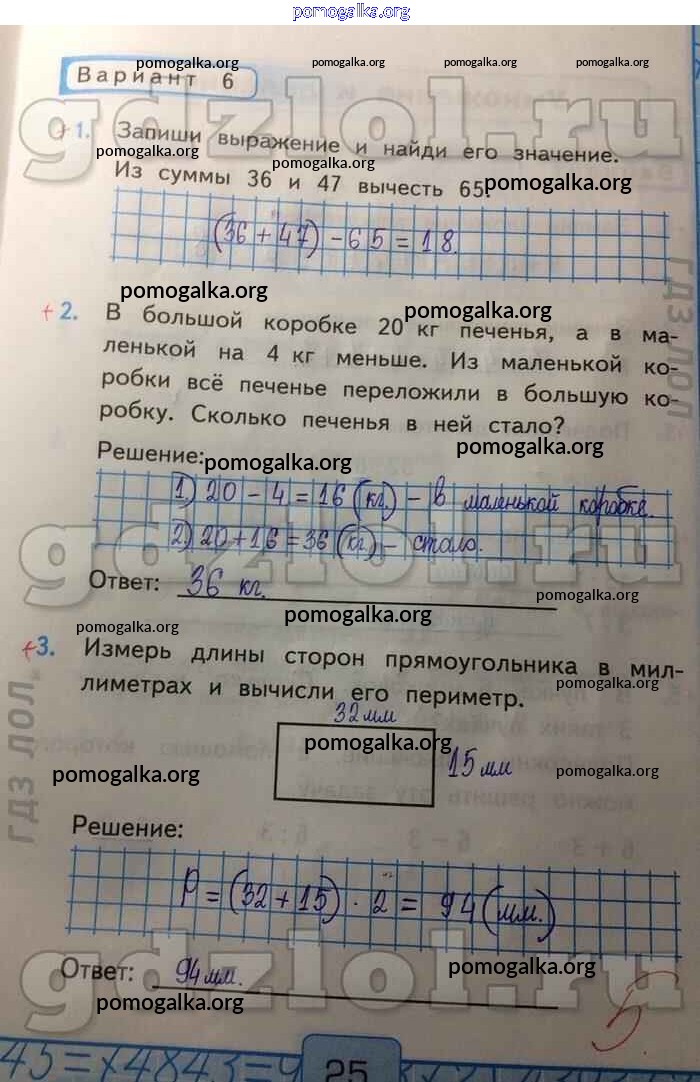 pomogalka.org
pomogalka.org pomogalka.org pomogalka.org pomogalka.org
Вариант 6
pomogalka.org
gdzlol.ru
+ 1. Запиши выражение и найди его значение.
pomogalka.org pomogalka.org
Из суммы 36 и 47 вычесть 65.
pomogalka.org
(36 + 47) - 65 = 18.
ГДЗ ЛОЛ
pomogalka.org
pomogalka.org
+ 2. В большой коробке 20 кг печенья, а в ма-
ленькой на 4 кг меньше. Из маленькой ко-
робки всё печенье переложили в большую ко-
робку. Сколько печенья в ней стало?
pomogalka.org
Решение:
pomogalka.org
1) 20 - 4 = 16 (кг.) - в маленькой коробке.
2) 20 + 16 = 36 (кг) - стало.
gdzlol.ru
Ответ: 36 кг.
pomogalka.org
pomogalka.org
pomogalka.org
+ 3. Измерь длины сторон прямоугольника в мил-
лиметрах и вычисли его периметр.
pomogalka.org
32 мм
pomogalka.org
15 мм
pomogalka.org pomogalka.org
ГДЗ ЛОЛ
Решение:
P = (32 + 15) · 2 = 94 (мм.)
Ответ: 94 мм.
pomogalka.org
gdzlol.ru
pomogalka.org
5
25